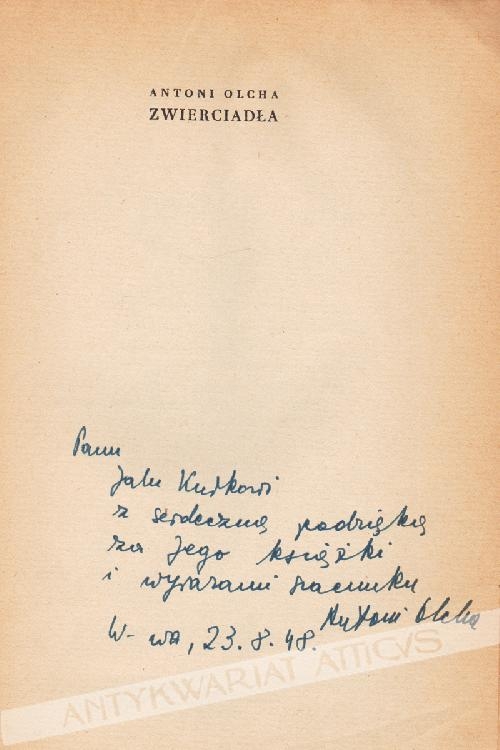 ANTONI OLCHA
ZWIERCIADŁA
Panu
Jalu Kurkowi
z serdeczną podzięką
za Jego książki
i wyrazami szacunku
Antoni Olcha
W-wa, 23.8.48.
ANTYKWARIAT ATTICVS